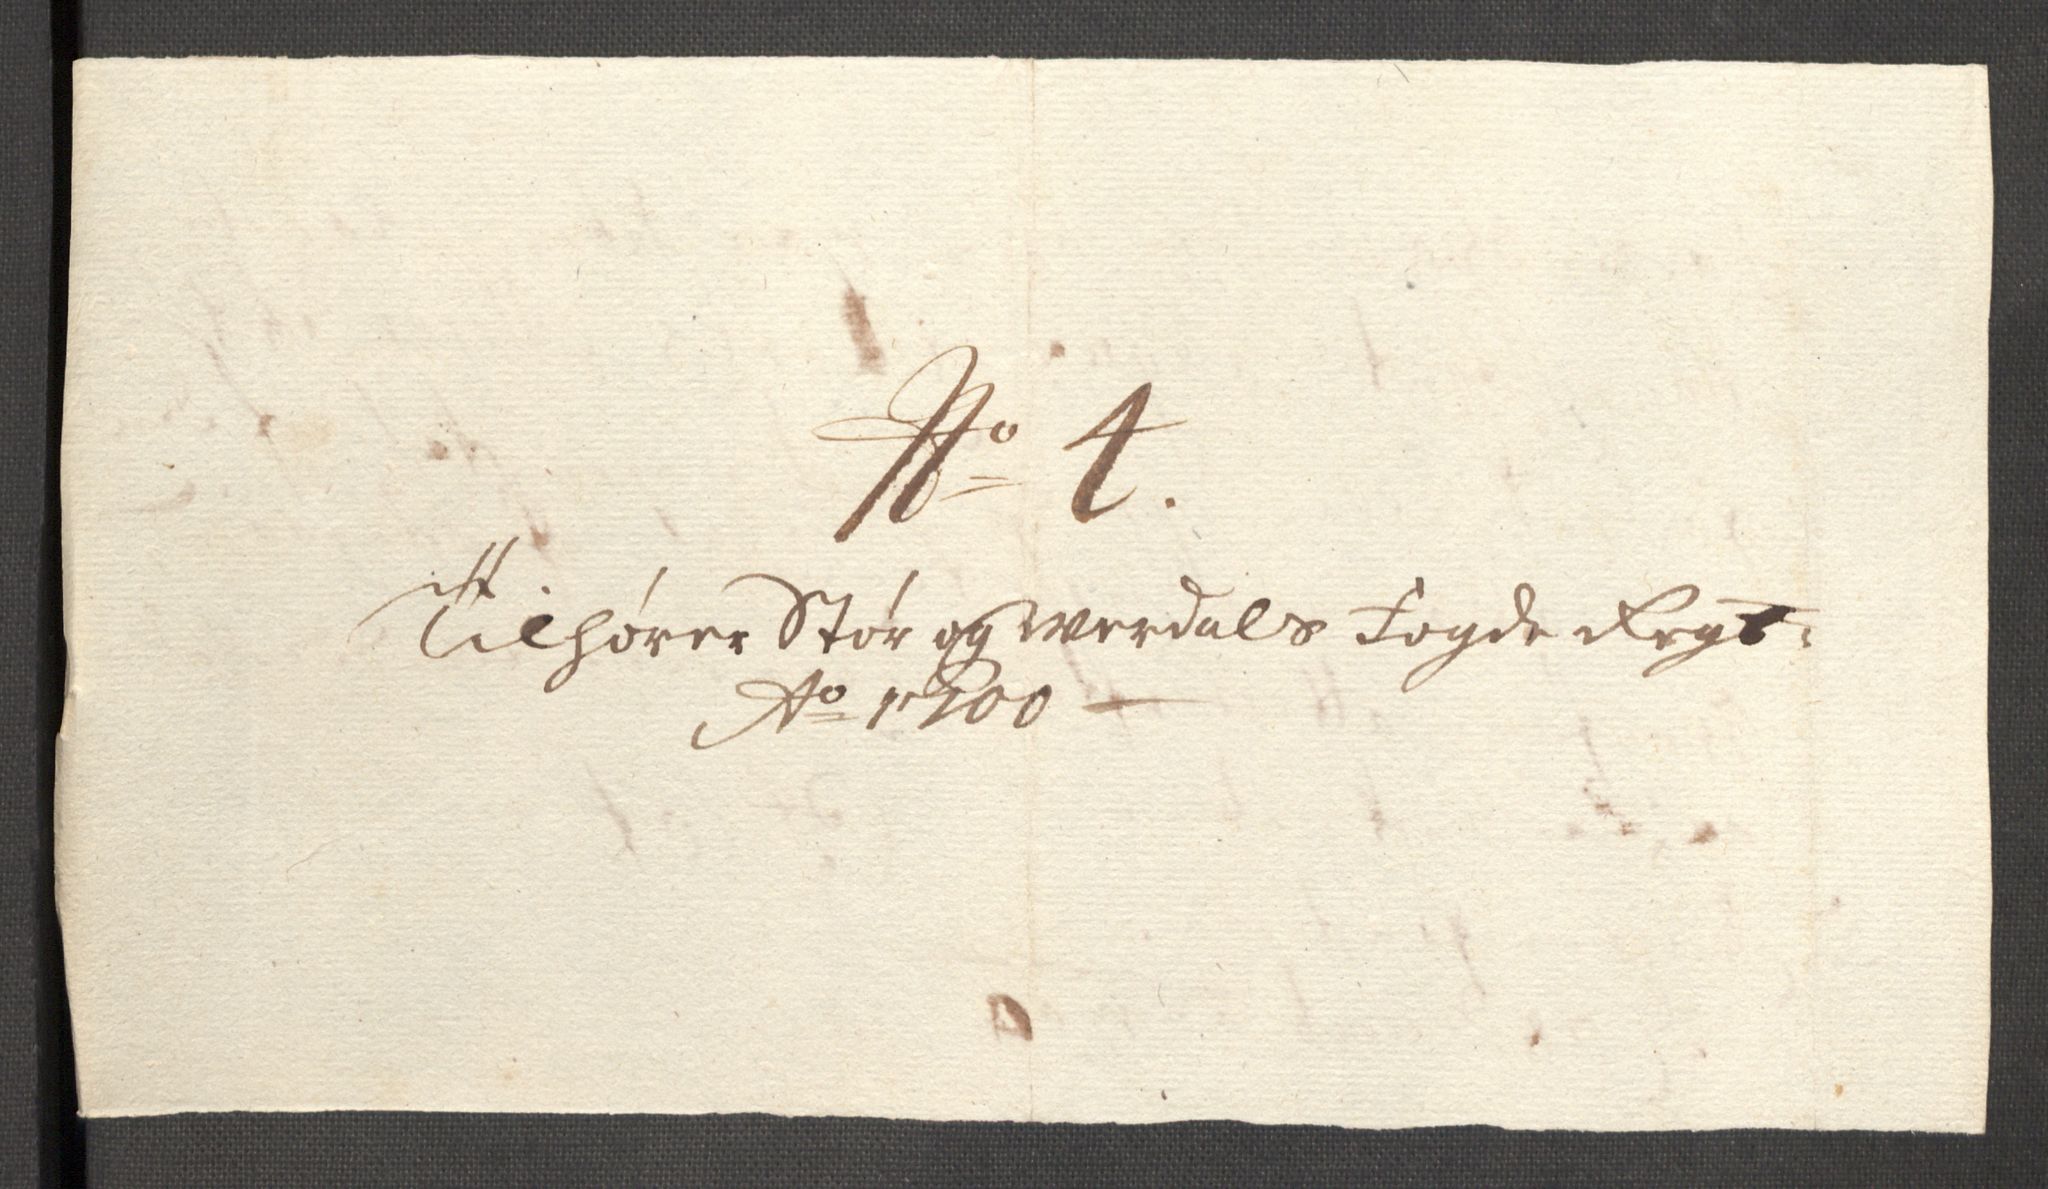 No 4.
Tilhører Stør og Werdals Fogde Regs:
Ao 1700